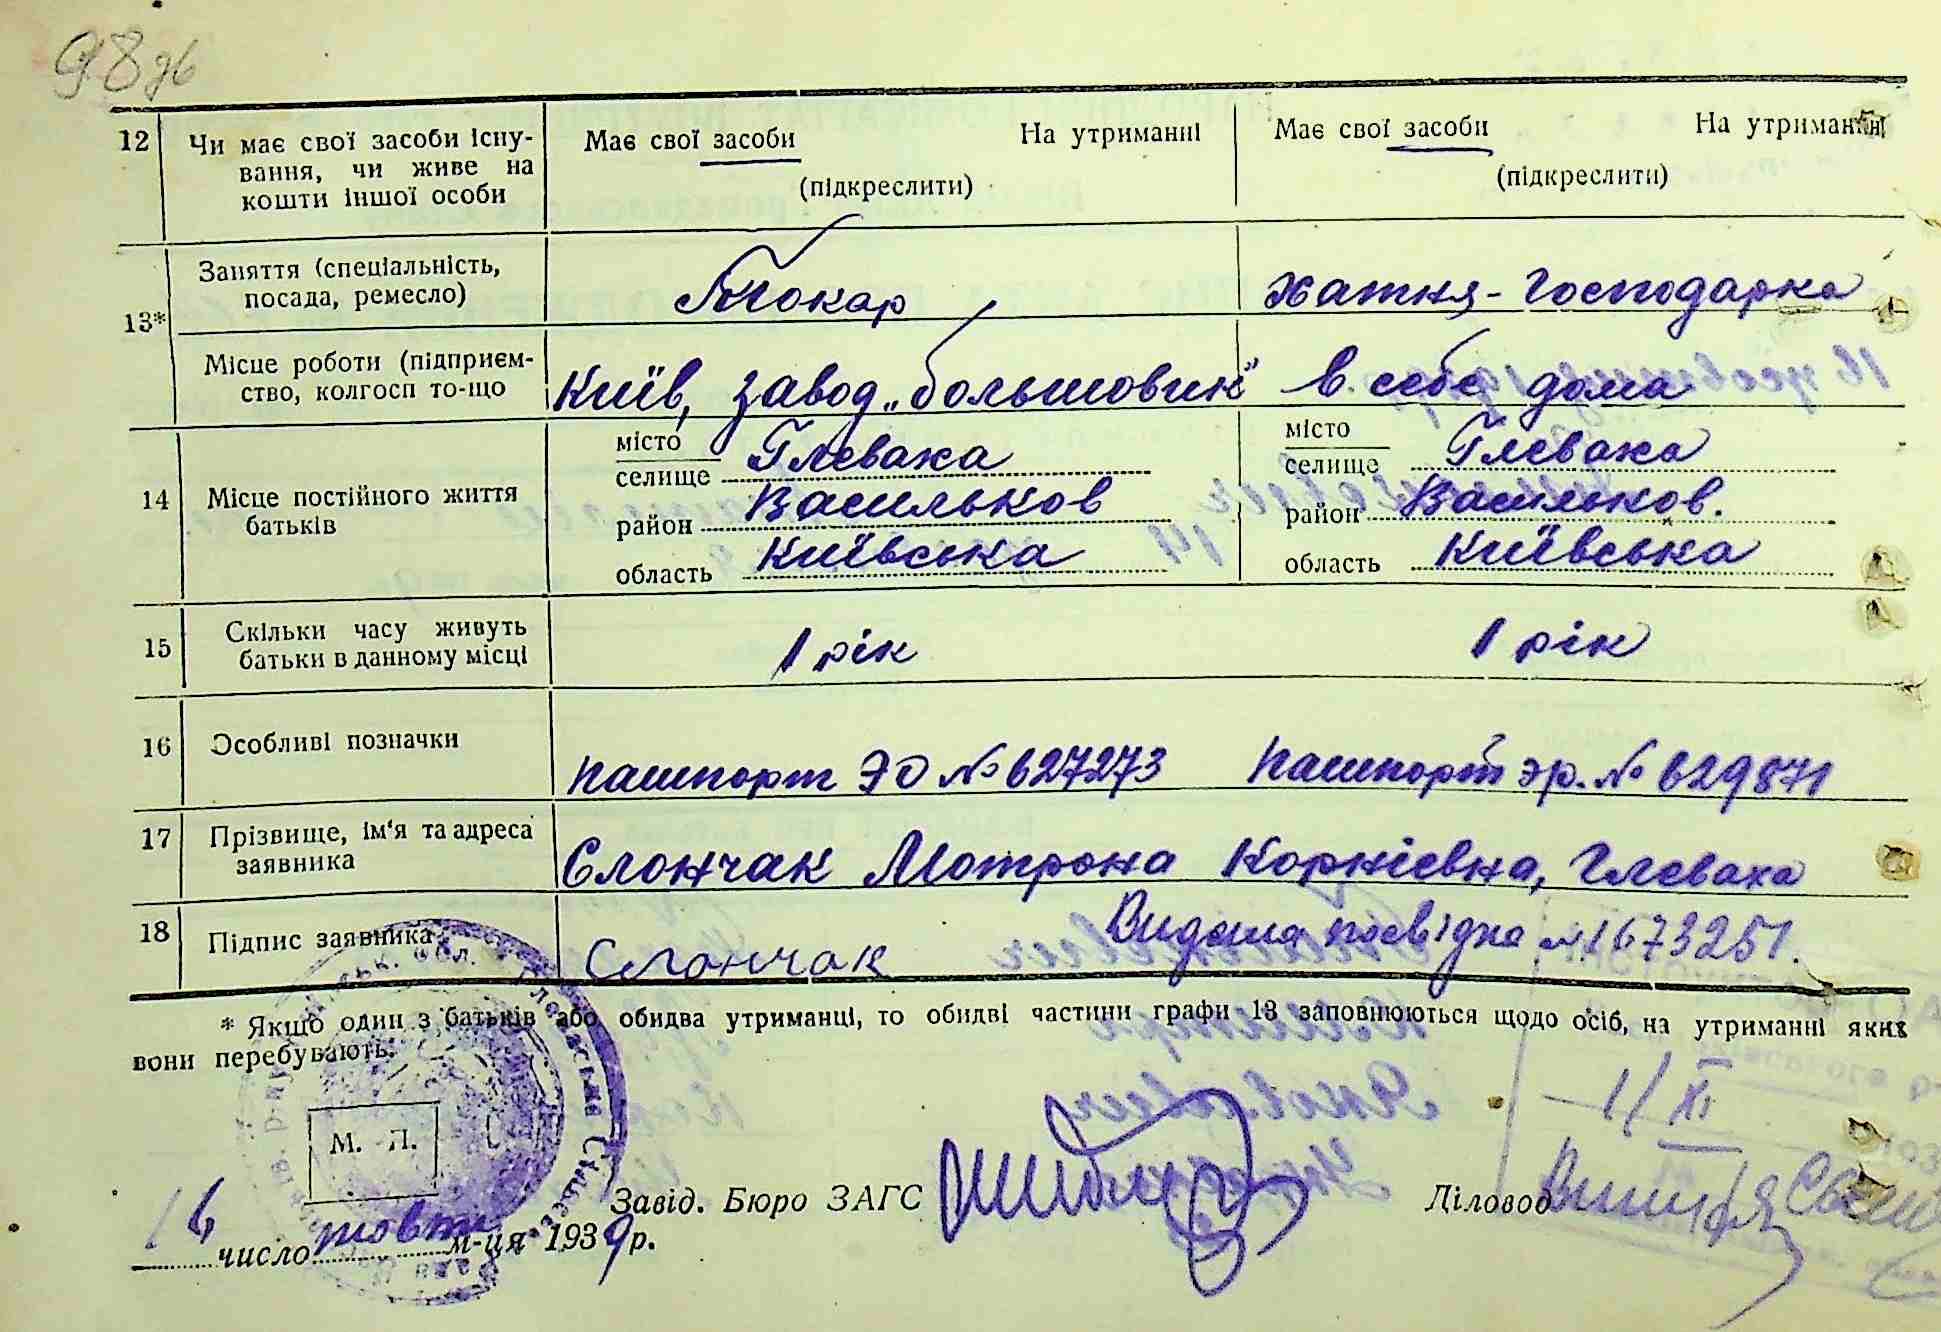 98зв
12 Чи має свої засоби існу-
вання, чи живе на
кошти іншої особи
Має свої засоби На утриманні
(підкреслити)
Має свої засоби На утриманні
(підкреслити)
13* Заняття (спеціальність,
посада, ремесло)
Токар
хатня-господарка
Місце роботи (підприєм-
ство, колгосп то-що
Київ, завод „большовик"
в себе дома
14 Місце постійного життя
батьків
місто
селище Глеваха
район Васильков
область Київська
місто
селище Глеваха
район Васильков.
область Київська
15 Скільки часу живуть
батьки в данному місці
1 рік
1 рік
16 Особливі позначки
пашпорт ЭО № 627273
пашпорт эр. № 629871
17 Прізвище, ім'я та адреса
заявника
Слончак Мотрона Корніевна, Глеваха
18 Підпис заявника
Слончак
Видана посвідка № 1673251.
* Якщо один з батьків або обидва утриманці, то обидві частини графи 13 заповнюються щодо осіб, на утриманні яких
вони перебувають.
М. П.
11/XI
Завід. Бюро ЗАГС
Діловод
16 число жовт м-ця 1939 р.